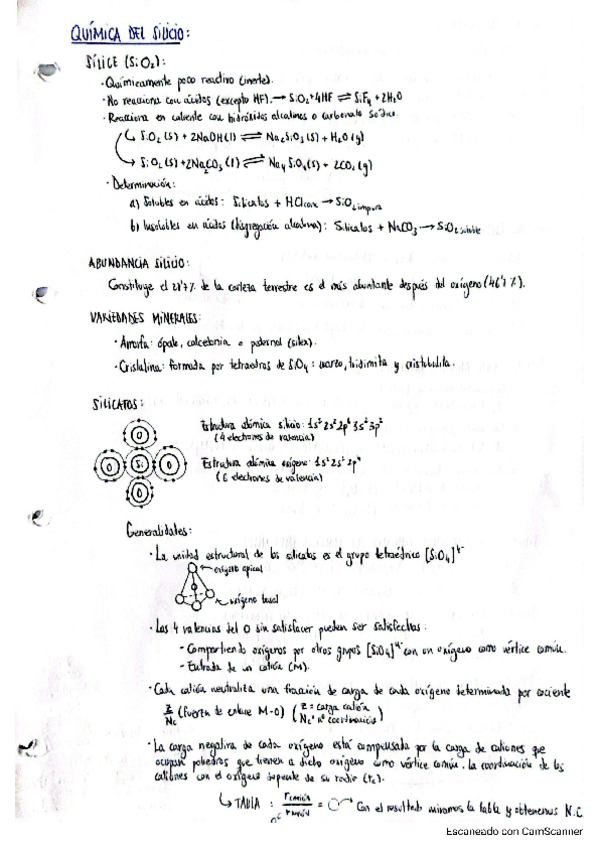 QUÍMICA DEL SILICIO:
SÍLICE (SiO₂):
· Químicamente poco reactivo (inerte).
· No reacciona con ácidos (excepto HF). → SiO₂ + 4HF ⇌ SiF₄ + 2H₂O
· Reacciona en caliente con hidróxidos alcalinos o carbonato sódico.
↳ SiO₂(s) + 2NaOH(l) ⇌ Na₂SiO₃(s) + H₂O(g)
↳ SiO₂(s) + 2Na₂CO₃(l) ⇌ Na₄SiO₄(s) + 2CO₂(g)
· Determinación:
a) Solubles en ácidos: Silicatos + HCl conc → SiO₂ impura
b) Insolubles en ácidos (disgregación alcalina): Silicatos + NaCO₃ → SiO₂ soluble
ABUNDANCIA SILICIO:
Constituye el 27'7% de la corteza terrestre es el más abundante después del oxígeno (46'1%).
VARIEDADES MINERALES:
· Amorfa: ópalo, calcedonia o pedernal (sílex).
· Cristalina: formada por tetraedros de SiO₄: cuarzo, tridimita y cristobalita.
SILICATOS:
O
O Si O
O
Estructura atómica silicio: 1s² 2s² 2p⁶ 3s² 3p²
(4 electrones de valencia)
Estructura atómica oxígeno: 1s² 2s² 2p⁴
(6 electrones de valencia)
Generalidades:
· La unidad estructural de los silicatos es el grupo tetraédrico [SiO₄]⁴⁻
oxígeno apical
oxígeno basal
· Las 4 valencias del O sin satisfacer pueden ser satisfechas:
- Compartiendo oxígenos por otros grupos [SiO₄]⁴⁻ con un oxígeno como vértice común.
- Entrada de un catión (M).
· Cada catión neutraliza una fracción de carga de cada oxígeno determinada por cociente
Z/Nc (fuerza de enlace M-O) (Z = carga catión
Nc = nº coordinación)
· La carga negativa de cada oxígeno está compensada por la carga de cationes que
ocupan poliedros que tienen a dicho oxígeno como vértice común. La coordinación de los
cationes con el oxígeno depende de su radio (rc).
↳ TABLA: r catión / r anión = Con el resultado miramos la tabla y obtenemos N.C.
Escaneado con CamScanner